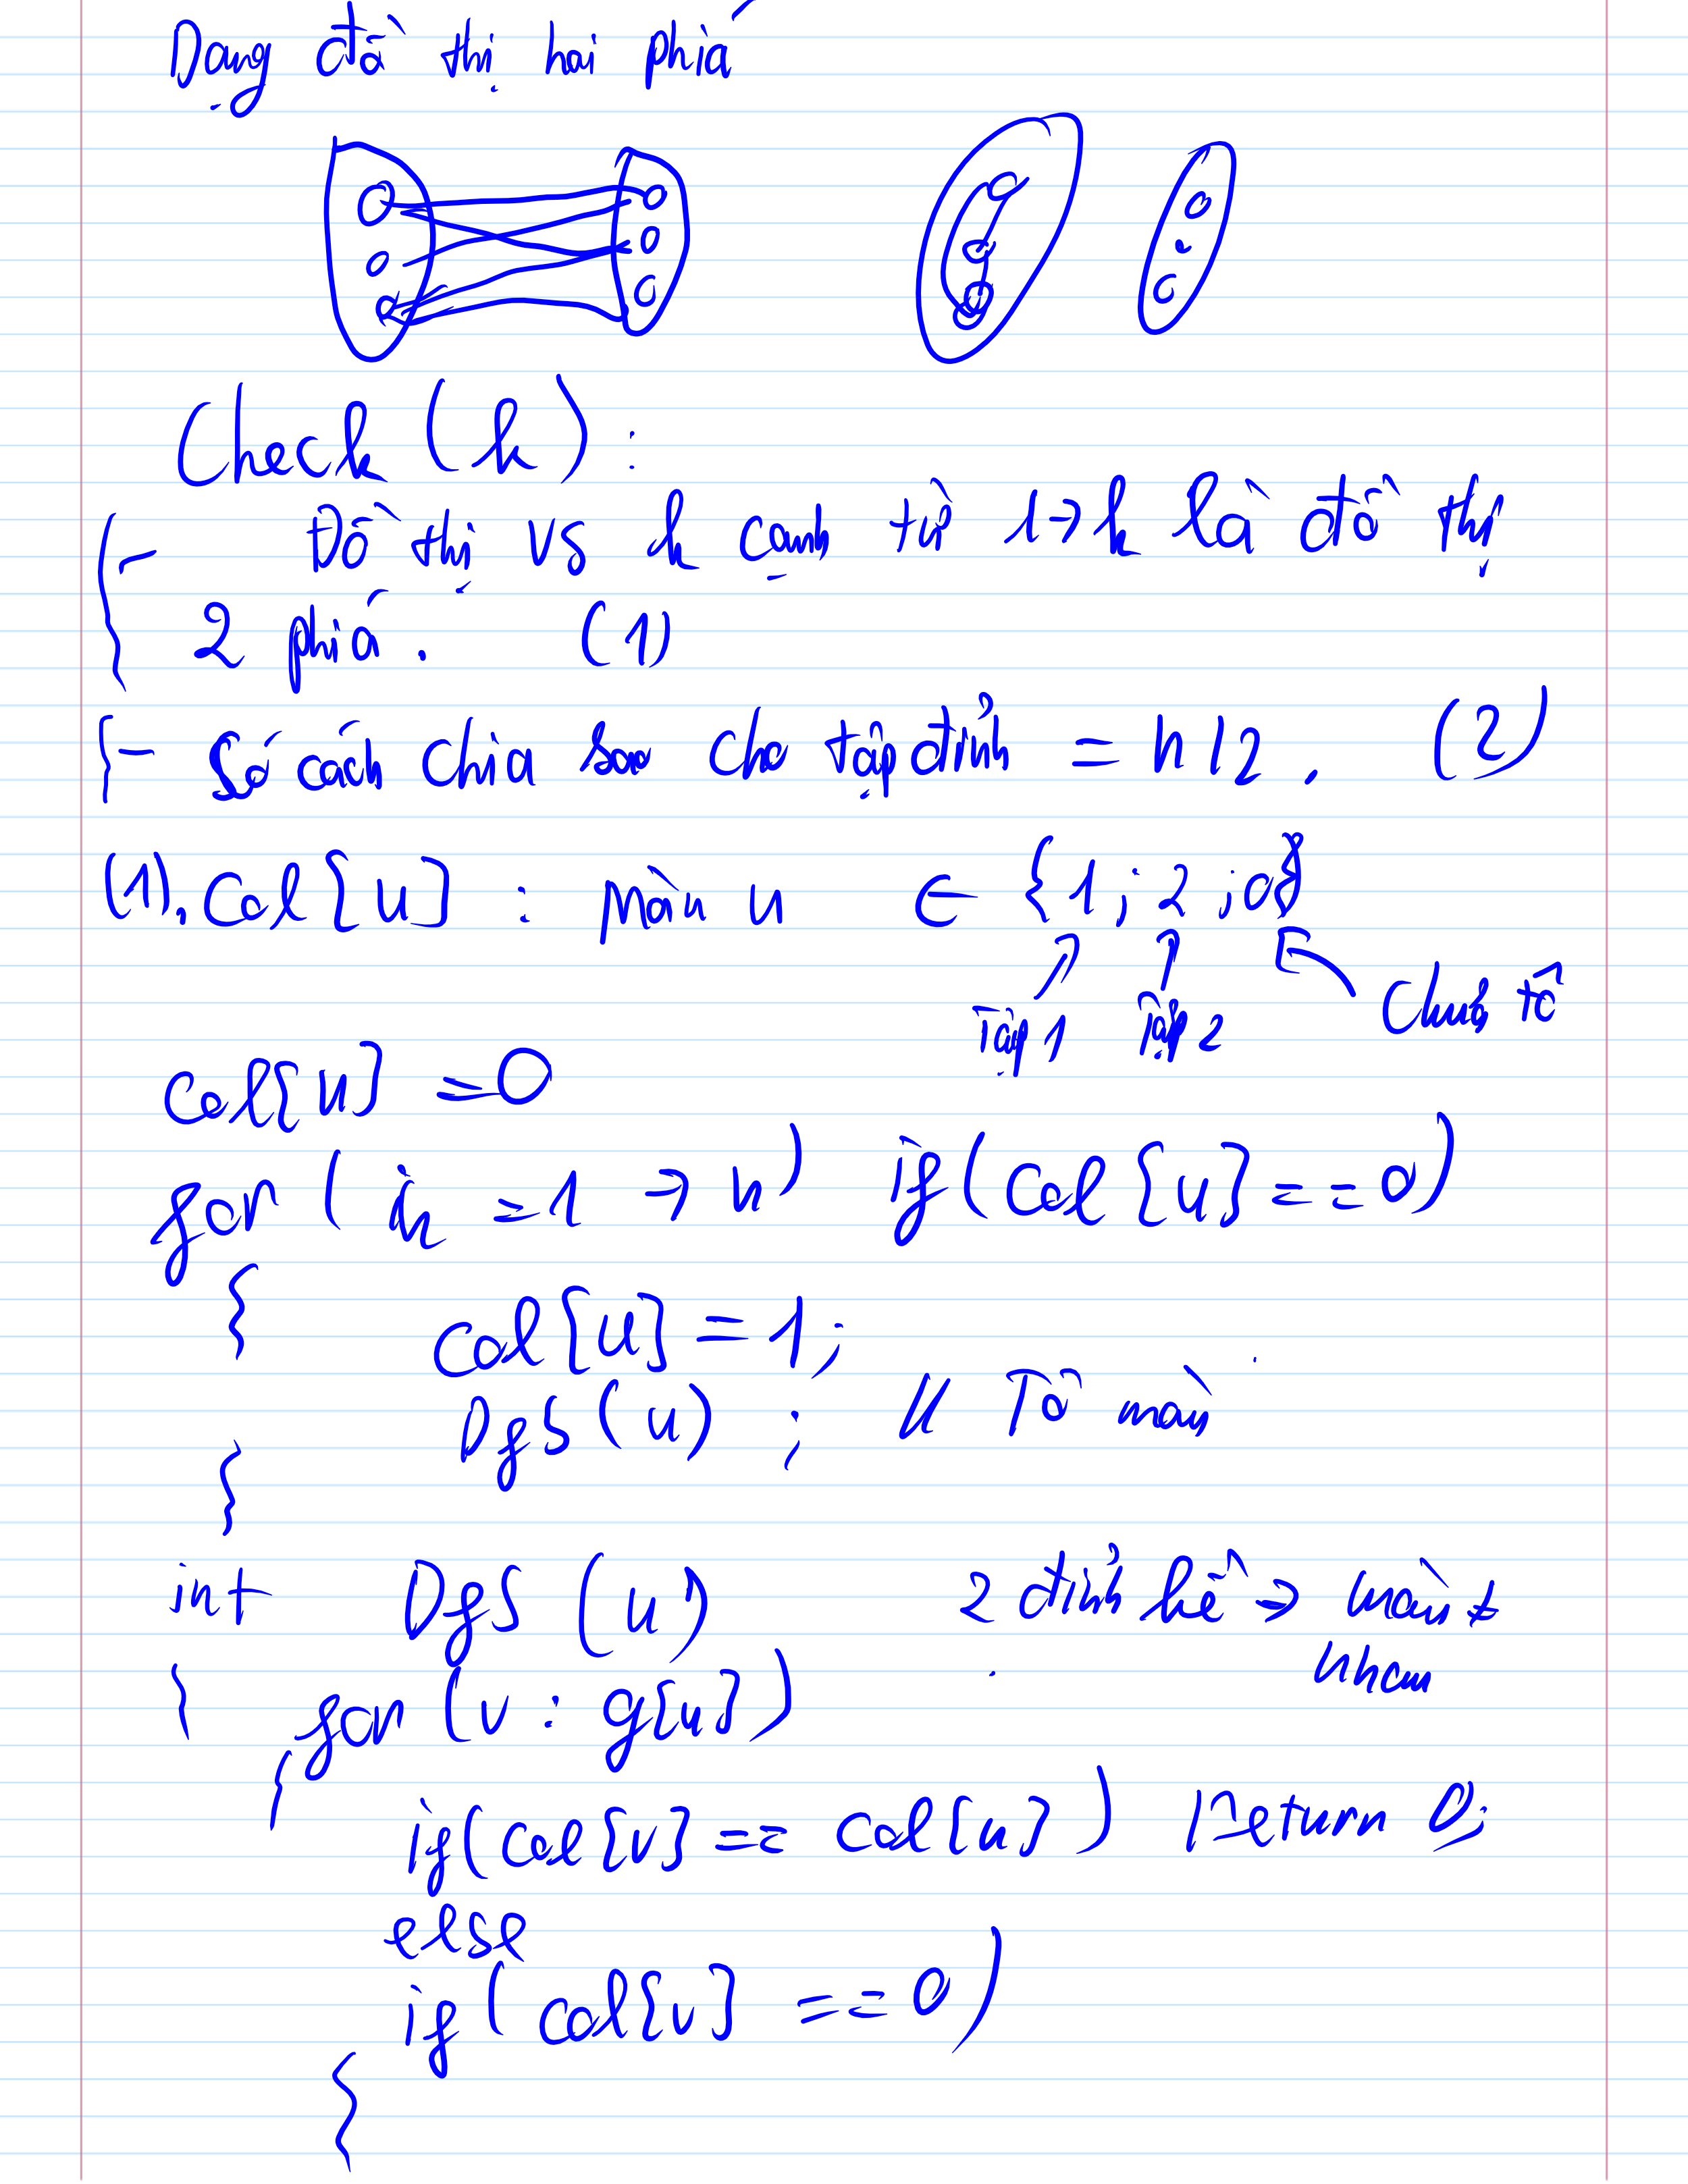 Dạng đồ thị hai phía
Check (k) :
Đồ thị vs k cạnh từ 1 → k là đồ thị
2 phía . (1)
- Số cách chia sao cho tập đỉnh = n/2 . (2)
(1). Col[u] : màu u ∈ {1; 2; 0}
Tập 1 Tập 2 Chưa tô
Col[u] = 0
for ( u = 1 → n) if(Col[u] == 0)
{
Col[u] = 1;
Dfs(u) ; // Tô màu
}
int Dfs (u) 2 đỉnh kề → màu ≠
{ for (v : g[u]) nhau
{
if(Col[v] == Col[u]) Return 0;
else
if(Col[v] == 0)
{